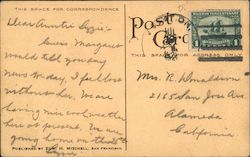 THIS SPACE FOR CORRESPONDENCE
Post
Card
THIS SPACE FOR ADDRESS ONLY
Dear Auntie Lizzie:-
Margaret
would tell you any
news to day, I feel lost
without her. We are
having nice cool weather
here at present, We are
going home on
Mrs. R. Donaldson
2165 San Jose Ave.
Alameda
California
Published by Edw. H. Mitchell, San Francisco